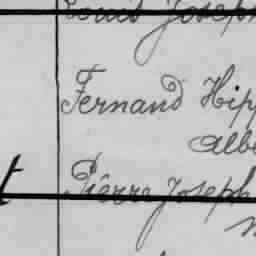 Louis Joseph
Fernand Hip
Albe
t Pierre Joseph